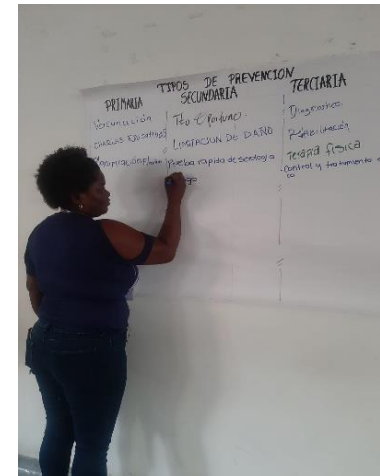 TIPOS DE PREVENCION
PRIMARIA
Vacunación
CHARLAS EDUCATIVAS
SECUNDARIA
Tto Oportuno
LIMITACION DE DAÑO
Prueba rapida de serología
TERCIARIA
Diagnostico
Rehabilitación
Terapia física
Control y tratamiento